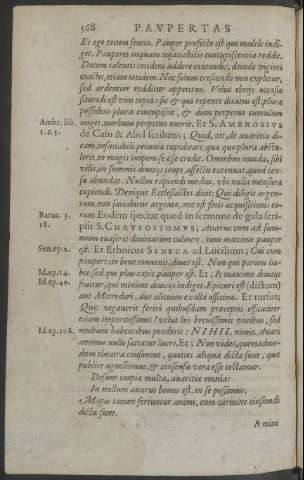 568 PAVPERTAS
Et ego tecum sentio. Pauper profecto est qui multis indi-
get. Pauperes inquam insatiabilis concupiscentiæ reddit.
Decem talentis totidem addere contendis; deinde viginti
coactis, etiam totidem. Nec solum crescendo non expletur,
sed ardentior redditur appetitus. Velut ebriis occasio
sitiendi est vini copia: sic & qui repente ditatus est, plura
possidens plura concupiscit, & dum perpetuo cumulum
Ambr. lib. auget, morbum perpetuo nutrit. Et S. AMBROSIVS
1. c. 5. de Cain & Abel scribens; Quid, ait, de auaritia di-
cam, insatiabili pecuniæ cupiditate, quæ quo plura abstu-
lerit, eo magis inopem se esse credit. Omnibus inuida, sibi
vilis, in summis diuitiis inops, affectu extenuat quod cen-
su abundat. Nullus rapiendi modus, vbi nulla mensura
cupiendi. Denique Ecclesiastes dixit; Qui diligit argen-
tum, non satiabitur argento, nec est finis acquisitioni eo-
Baruc. 3. rum. Eodem spectat quod in sermone de gula scri-
18. psit S. CHRYSOSTOMVS; Auarus cum ad sum-
mum euaserit diuitiarum culmen, tum maxime pauper
Sen. ep. 2. est. Et Ethnicus SENECA ad Lucilium; Cui cum
paupertate bene conuenit, diues est. Non qui parum ha-
Id. ep. 14. bet, sed qui plus cupit, pauper est. Et; Is maxime diuitiis
fruitur, qui minime diuitiis indiget. Epicuri est (dictum)
aut Metrodori, aut alicuius ex illa officina. Et rursus;
Quis negauerit feriri quibusdam præceptis efficaciter
etiam imperitissimos? velut his breuissimis vocibus, sed
Id. ep. 108. multum habentibus ponderis: NIHIL nimis. Auari
animus nullo satiatur lucro. Et; Non vides, quemadmo-
dum theatra consonent, quoties aliqua dicta sunt, quæ
publice agnoscimus, & consensu vera esse testamur.
Desunt inopiæ multa, auaritiæ omnia:
In nullum auarus bonus est, in se pessimus.
Magis tamen feriuntur animi, cum carmine eiusmodi
dicta sunt.